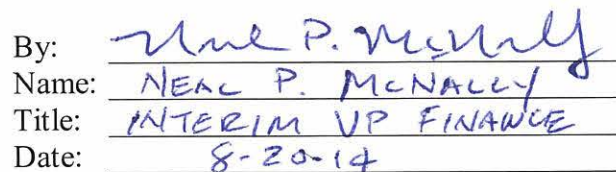 By: Neal P. McNally
Name: NEAL P. McNALLY
Title: INTERIM VP FINANCE
Date: 8-20-14